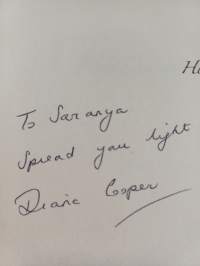 H
To Saranya
Spread you light
Diana Cooper